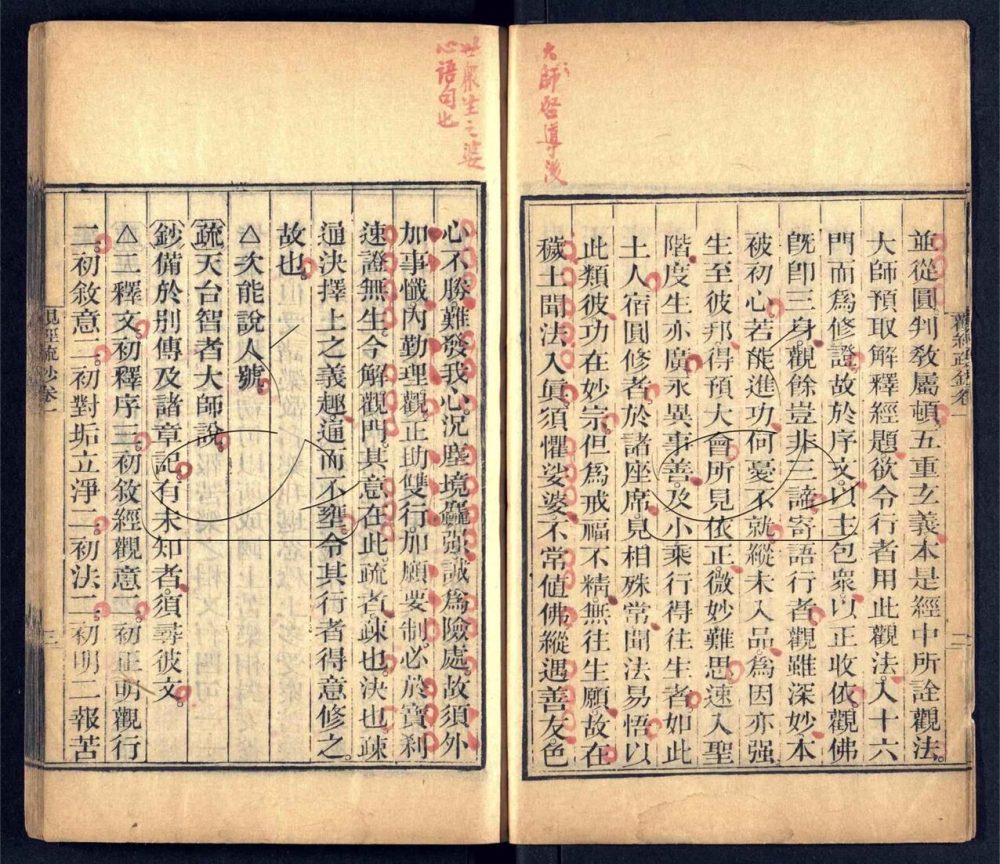 大師啓導後
並從圓判敎屬頓五重玄義本是經中所詮觀法。
大師預取解釋經題欲令行者用此觀法。入十六
門而爲修證。故於序文。以土包衆。以正收依。觀佛
旣卽三身。觀餘豈非三諦寄語行者觀雖深妙本
被初心。若能進功何憂不就。縱未入品。爲因亦强
生至彼邦。得預大會所見依正。微妙難思速入聖
階度生亦廣。永異事善。及小乘行得往生者。如此
土人宿圓修者於諸座席見相殊常聞法易悟以
此類彼。功在妙宗但爲戒福不精。無往生願故在
穢土聞法入眞須懼娑婆不常値佛縱遇善友色
世衆生之婆
心語句也
心不勝。難發我心。況塵境麤强。誠爲險處。故須外
加事懺內勤理觀。正助雙行。加願要制。必於寶刹
速證無生。今解觀門其意在此疏者。疎也。決也疎
通決擇上之義趣。通而不壅。令其行者得意修之。
故也。
△次能說人號。
疏天台智者大師說。
鈔備於別傳及諸章記。有未知者。須尋彼文。
△二釋文。初釋序三。初敘經觀意二。初正明觀行
二。初敘意二。初對垢立淨二。初法二。初明二報苦